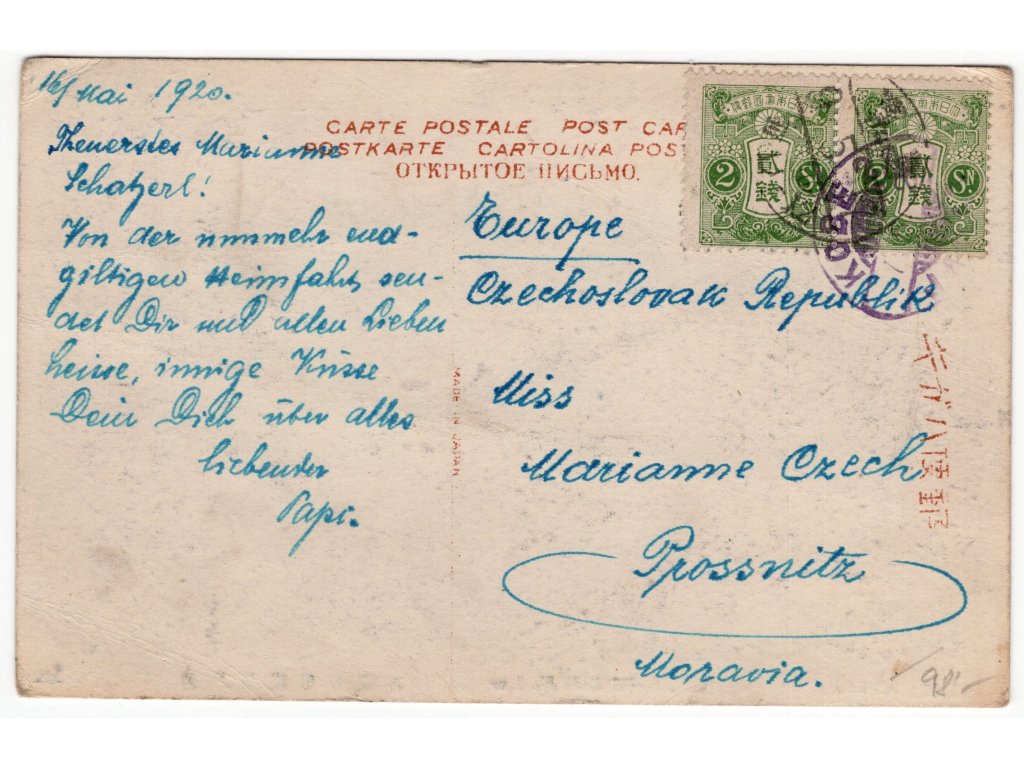 16/ Mai 1920.
Theuerstes Marianne
Schatzerl!
Von der nunmehr end-
giltigen Heimfahrt sen-
det Dir und allen Lieben
heisse, innige Küsse
Dein Dich über alles
liebender
Papi.
CARTE POSTALE POST CAR
POSTKARTE CARTOLINA POST
ОТКРЫТОЕ ПИСЬМО.
大日本帝國郵便
貳錢
2
大日本帝國郵便
貳錢
2 SN
KOBE
Europe
Czechoslovak Republik
Miss
Marianne Czech
Prossnitz
Moravia.
MADE IN JAPAN
きがは便郵
98'-